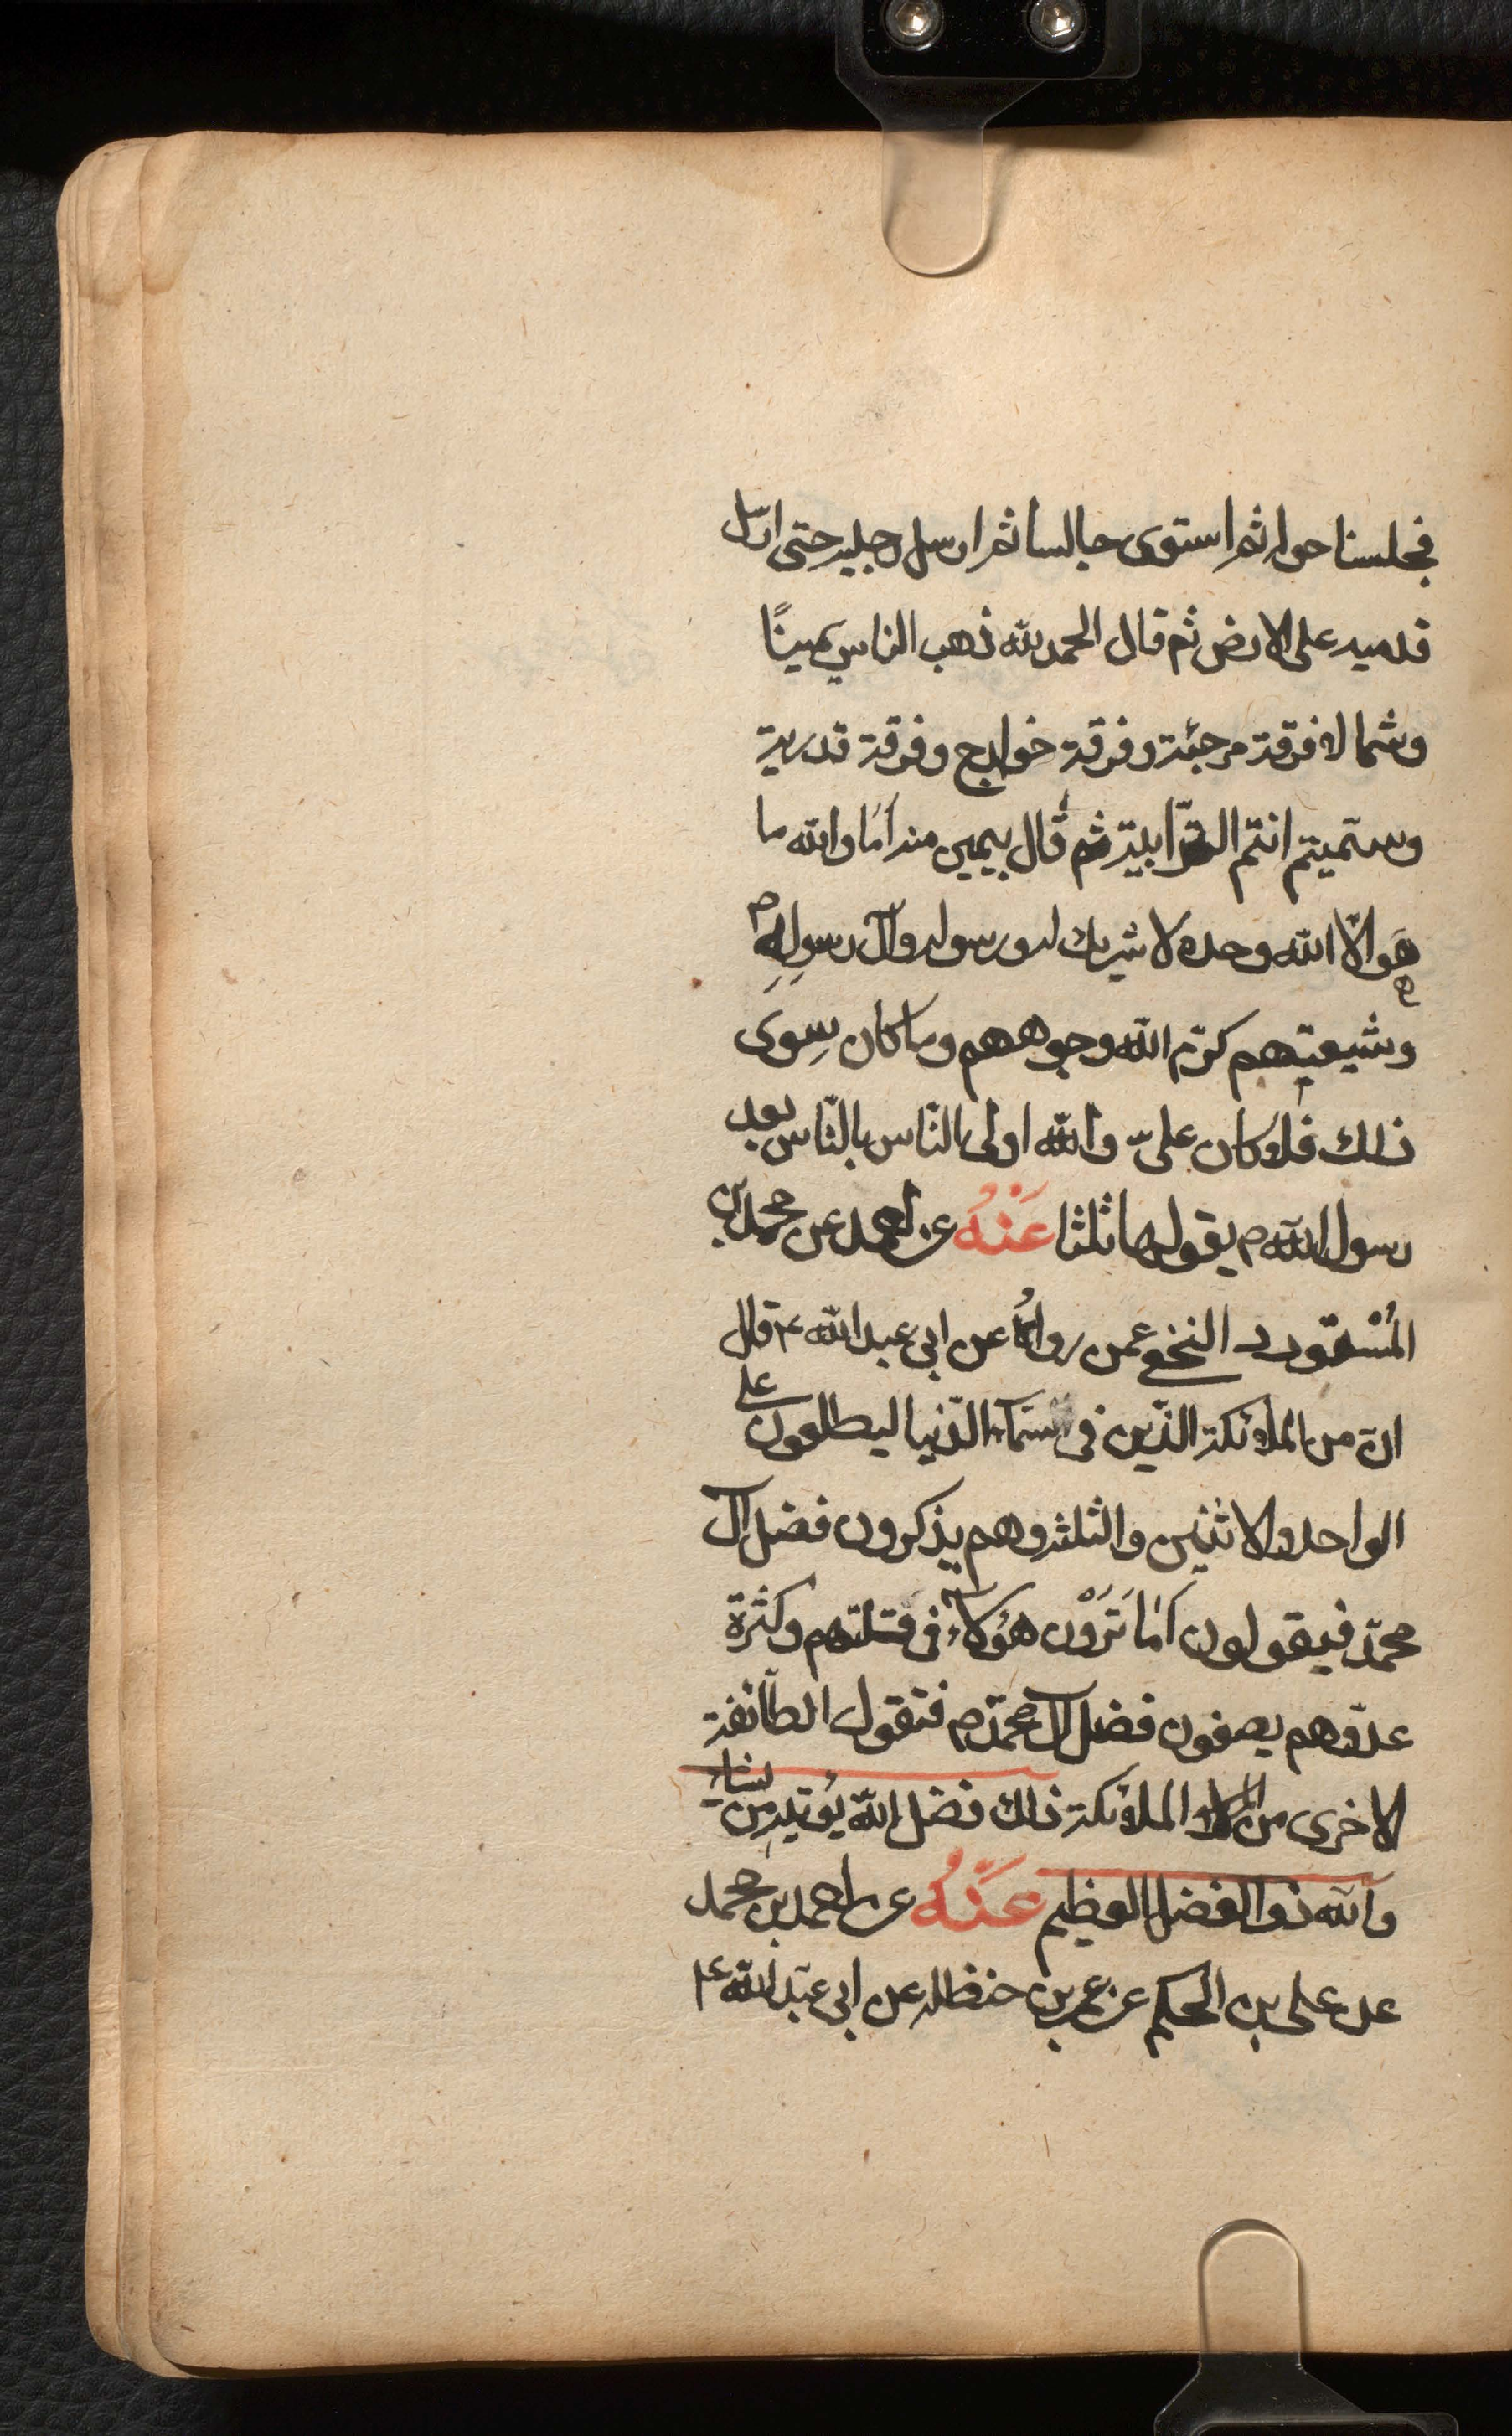 فجلسنا حوله ثم استوى جالسا ثم ارسل رجليه حتى ارسل
قدميه على الارض ثم قال الحمد لله ذهب الناس يمينًا
وشمالا فرقة مرجئة وفرقة خوارج وفرقة قدرية
وسمّيتم انتم الترّابية ثم قال بيمين منه اَمَا والله ما
هو الّا الله وحده لا شريك له ورسوله وآل رسولِهِ ص
وشيعتهم كرّم الله وجوههم وما كان سِوى
ذلك فلا كان علىّ والله اولى النّاس بالنّاس بعد
رسول الله ص يقولها ثلثا عَنْهُ عن احمد عن محمد بن
المُسْتورد النخعى عمن رواهُ عن ابى عبد الله ع قال
انّ من الملائكة الذّين فى السّماء الدّنيا ليطلعون على
الواحد والاثنين والثلثة وهم يذكرون فضل آل
محمّد فيقولون اَمَا تَرَوْن هؤلاء فى قلتهم وكثرة
عدوّهم يصفون فضل آل محمّد ص فتقول الطآئفة
الاخرى من الملائكة ذلك فضل الله يُؤتيهِ من يشاء
والله ذوا الفضل العظيم عَنْهُ عن احمد بن محمد
عن على بن الحكم عن عمر بن حنظله عن ابى عبد الله ع